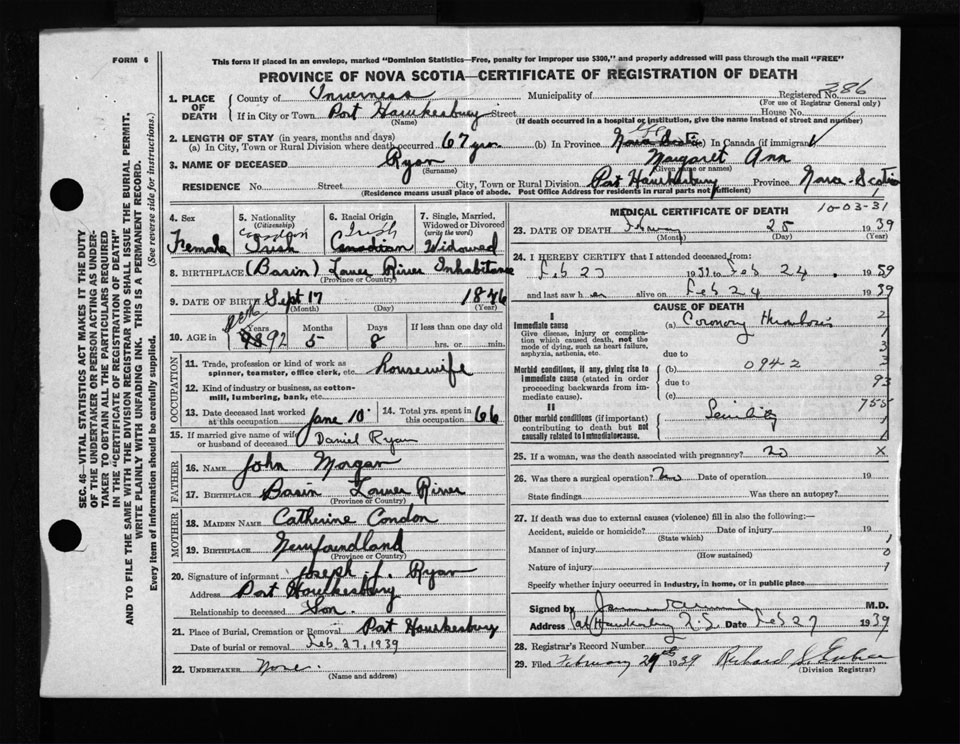 FORM 6
This form if placed in an envelope, marked "Dominion Statistics—Free, penalty for improper use $300," and properly addressed will pass through the mail "FREE"
PROVINCE OF NOVA SCOTIA—CERTIFICATE OF REGISTRATION OF DEATH
SEC. 46—VITAL STATISTICS ACT MAKES IT THE DUTY
OF THE UNDERTAKER OR PERSON ACTING AS UNDER-
TAKER TO OBTAIN ALL THE PARTICULARS REQUIRED
IN THE "CERTIFICATE OF REGISTRATION OF DEATH"
AND TO FILE THE SAME WITH THE DIVISION REGISTRAR WHO SHALL ISSUE THE BURIAL PERMIT.
WRITE PLAINLY WITH UNFADING INK. THIS IS A PERMANENT RECORD.
Every item of information should be carefully supplied. (See reverse side for instructions.)
1. PLACE OF DEATH County of Inverness Municipality of Registered No. 386
(For use of Registrar General only)
If in City or Town Port Hawkesbury Street House No.
(Name) (If death occurred in a hospital or institution, give the name instead of street and number)
2. LENGTH OF STAY (in years, months and days)
(a) In City, Town or Rural Division where death occurred 67 yrs (b) In Province Nova Scotia (c) In Canada (if immigrant)
3. NAME OF DECEASED Ryan Margaret Ann
(Surname) (Given name or names)
RESIDENCE No. Street City, Town or Rural Division Port Hawkesbury Province Nova-Scotia
(Residence means usual place of abode. Post Office Address for residents in rural parts not sufficient)
4. Sex
Female
5. Nationality
(Citizenship)
Canadian
Irish
6. Racial Origin
Irish
Canadian
7. Single, Married, Widowed or Divorced
(write the word)
Widowed
8. BIRTHPLACE (Basin) Lower River Inhabitance
(Province or Country)
9. DATE OF BIRTH Sept 17 1846
(Month) (Day) (Year)
10. AGE in Years 92 Months 5 Days 8 If less than one day old
hrs. or min.
OCCUPATION
11. Trade, profession or kind of work as
spinner, teamster, office clerk, etc. Housewife
12. Kind of industry or business, as cotton-
mill, lumbering, bank, etc.
13. Date deceased last worked at this occupation June 10 14. Total yrs. spent in this occupation 66
15. If married give name of wife or husband of deceased Daniel Ryan
FATHER
16. NAME John Morgan
17. BIRTHPLACE Basin Lower River
(Province or Country)
MOTHER
18. MAIDEN NAME Catherine Condon
19. BIRTHPLACE Newfoundland
(Province or Country)
20. Signature of informant Joseph J. Ryan
Address Port Hawkesbury
Relationship to deceased Son.
21. Place of Burial, Cremation or Removal Port Hawkesbury
Date of burial or removal Feb. 27, 1939
22. UNDERTAKER None.
(Name and address)
MEDICAL CERTIFICATE OF DEATH 10-03-31
23. DATE OF DEATH February 25 1939
(Month) (Day) (Year)
24. I HEREBY CERTIFY that I attended deceased from:
Feb 23 19 to Feb 24 1939
and last saw her alive on Feb 24 1939
CAUSE OF DEATH
I
Immediate cause (a) Coronary Thrombosis 2
Give disease, injury or complica-
tion which caused death, not the
mode of dying, such as heart failure,
asphyxia, asthenia, etc.
due to
Morbid conditions, if any, giving rise to (b) 0942
immediate cause (stated in order
proceeding backwards from im-
mediate cause).
due to 93
(c)
755
II
Other morbid conditions (if important)
contributing to death but not
causally related to immediate cause. Senility
25. If a woman, was the death associated with pregnancy? no X
26. Was there a surgical operation? no Date of operation 19
State findings Was there an autopsy?
27. If death was due to external causes (violence) fill in also the following:—
Accident, suicide or homicide? Date of injury 19 1
(State which)
Manner of injury 0
(How sustained)
Nature of injury 1
Specify whether injury occurred in industry, in home, or in public place
Signed by M.D.
Address Pt Hawkesbury N.S. Date Feb 27 1939
28. Registrar's Record Number
29. Filed February 1939 Richard
(Division Registrar)